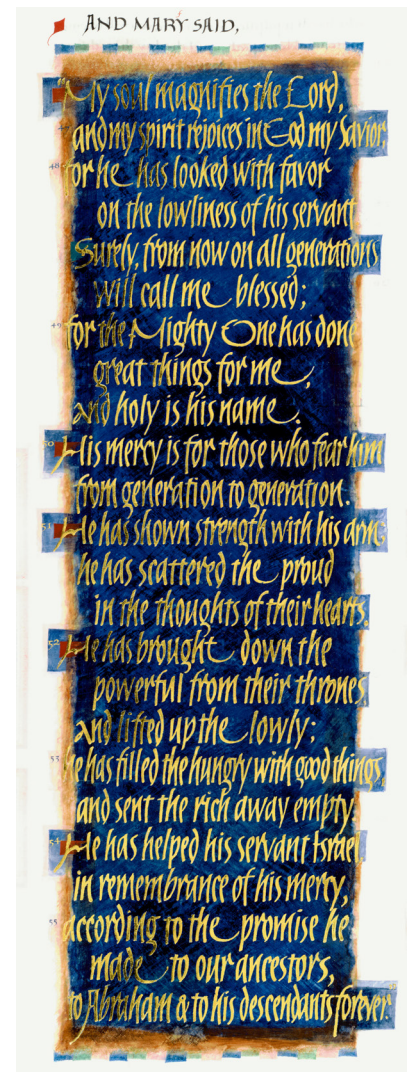 AND MARY SAID,
"My soul magnifies the Lord,
47 and my spirit rejoices in God my Savior,
48 for he has looked with favor
on the lowliness of his servant.
Surely, from now on all generations
will call me blessed;
49 for the Mighty One has done
great things for me,
and holy is his name.
50 His mercy is for those who fear him
from generation to generation.
51 He has shown strength with his arm;
he has scattered the proud
in the thoughts of their hearts.
52 He has brought down the
powerful from their thrones,
and lifted up the lowly;
53 he has filled the hungry with good things,
and sent the rich away empty.
54 He has helped his servant Israel,
in remembrance of his mercy,
55 according to the promise he
made to our ancestors,
to Abraham & to his descendants forever."